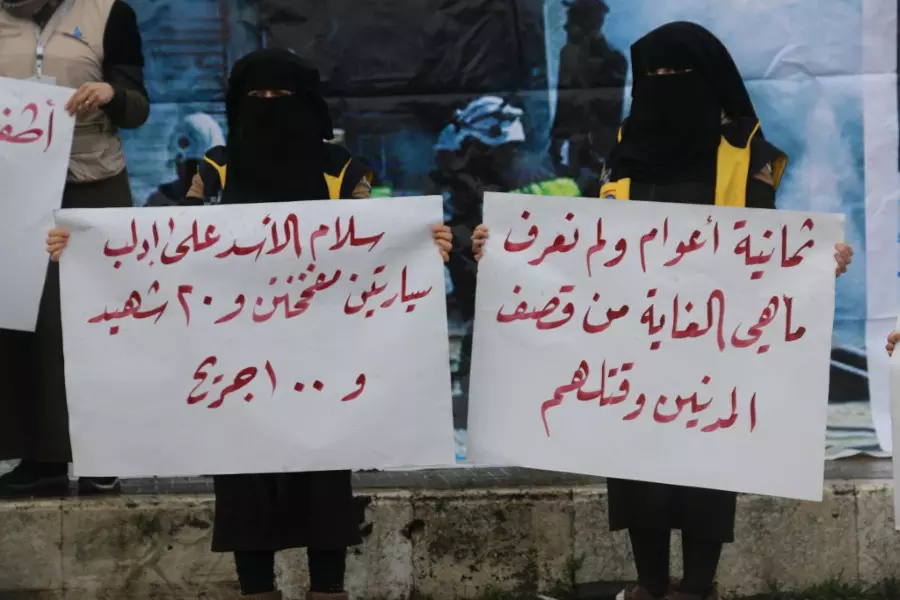 ثمانية أعوام ولم نعرف
ماهي الغاية من قصف
المدنين وقتلهم
سلام الأسد على إدلب
سيارتين مفخختين و ٢٠ شهيد
و ١٠٠ جريح